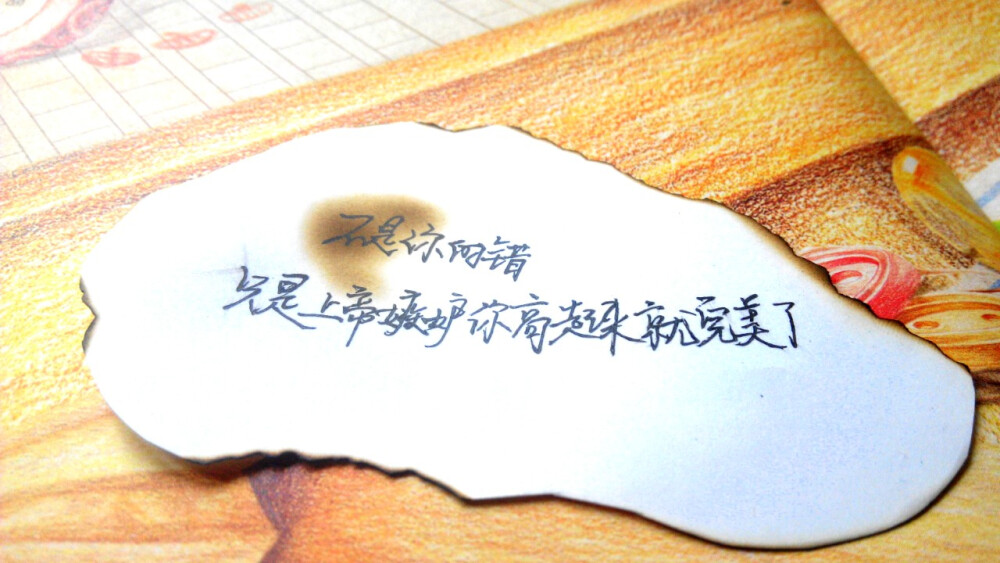 不是你的错
只是上帝嫉妒你高起来就完美了